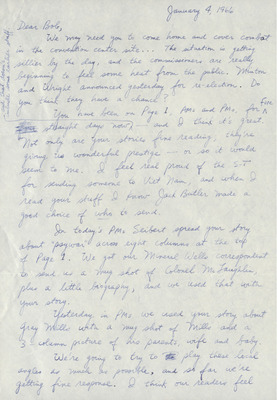 January 4, 1966
Dear Bob,
We may need you to come home and cover combat
in the convention center site... The situation is getting
sillier by the day, and the commissioners are really
beginning to feel some heat from the public. Minton
and Wright announced yesterday for re-election. Do
you think they have a chance?
You have been on Page 1, AMs and PMs, for five
straight days now, and I think it's great.
Not only are your stories fine reading, they're
giving us wonderful prestige — or so it would
seem to me. I feel real proud of the S-T
for sending someone to Viet Nam, and when I
read your stuff I know Jack Butler made a
good choice of who to send.
In today's AMs Seibert spread your story
about "psywar" across eight columns at the top
of Page 1. We got our Mineral Wells correspondent
to send us a mug shot of Colonel McLaughlin,
plus a little biography, and we used that with
your story.
Yesterday in PMs we used your story about
Gray Mills with a mug shot of Mills and a
3-column picture of his parents, wife and baby.
We're going to try to play these local
angles as much as possible, and so far we're
getting fine response. I think our readers feel